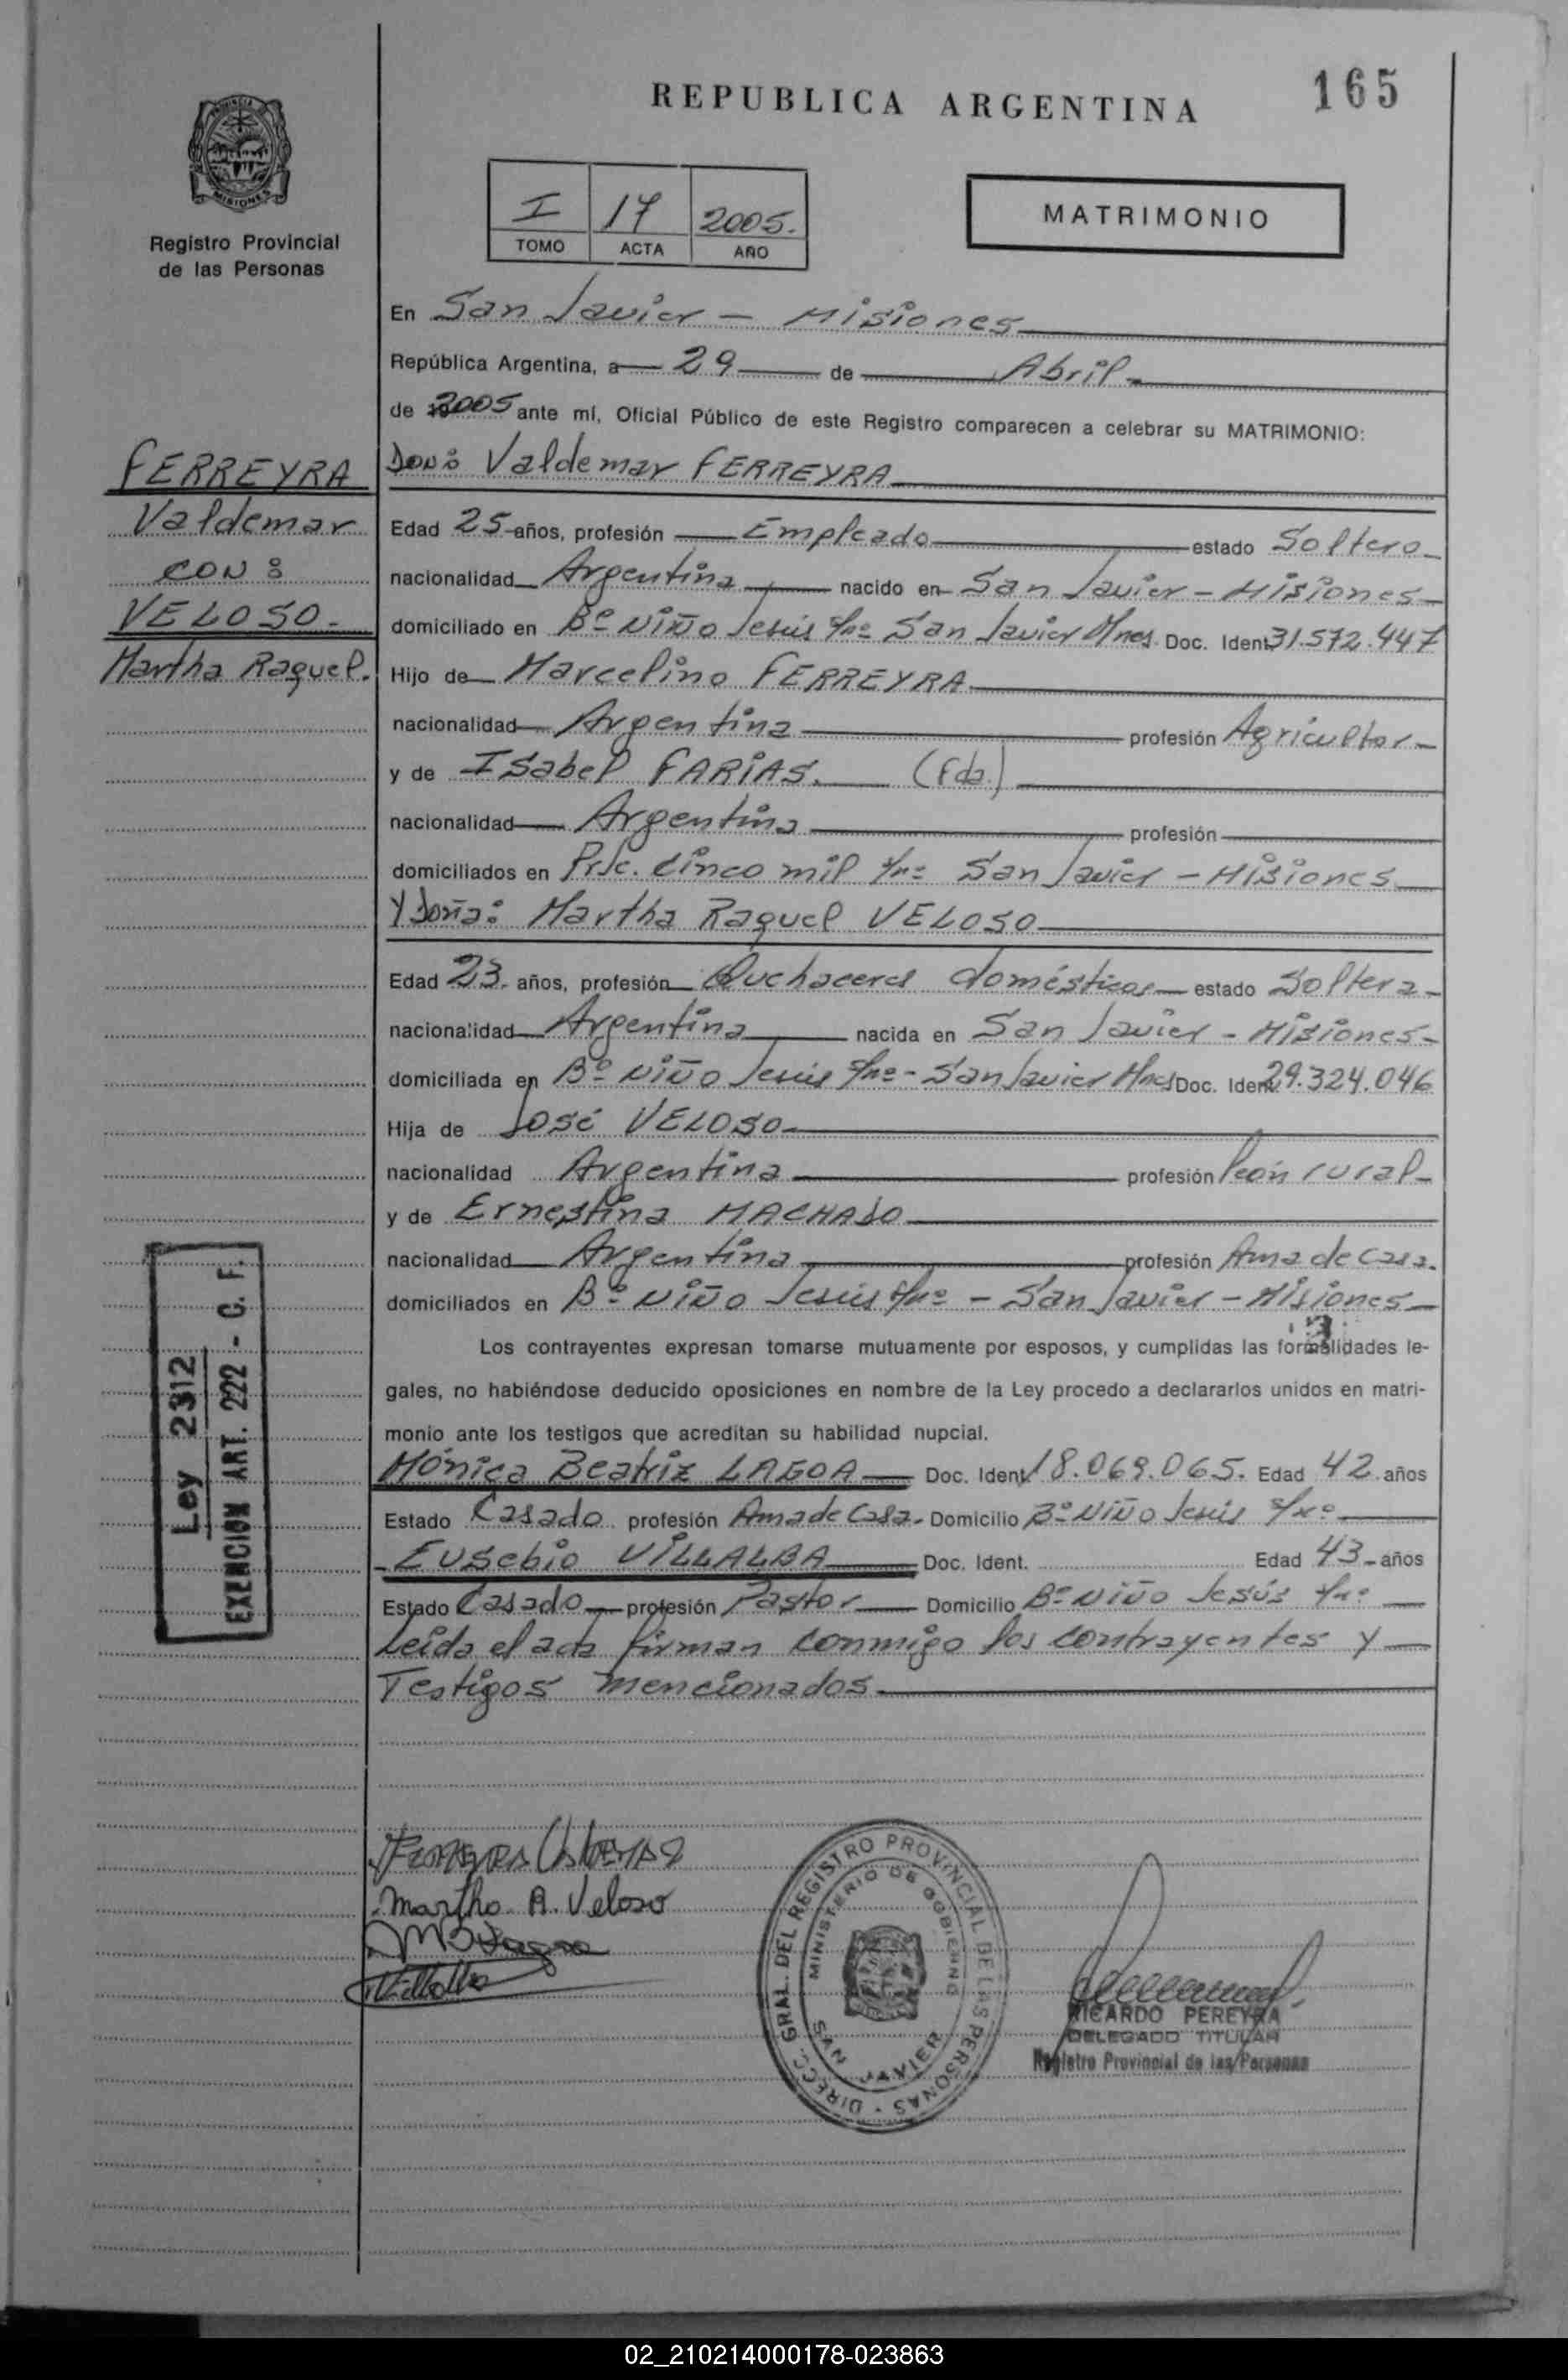 165
REPUBLICA ARGENTINA
PROVINCIA DE MISIONES
Registro Provincial
de las Personas
I 17 2005.
TOMO ACTA AÑO
MATRIMONIO
En San Javier - Misiones
República Argentina, a 29 de Abril
de 2005 ante mí, Oficial Público de este Registro comparecen a celebrar su MATRIMONIO:
FERREYRA
Valdemar
CON:
VELOSO.
Martha Raquel.
Don: Valdemar FERREYRA
Edad 25 años, profesión Empleado estado Soltero
nacionalidad Argentina nacido en San Javier - Misiones
domiciliado en Bº Niño Jesús s/nº San Javier Mnes. Doc. Ident. 31.572.447
Hijo de Marcelino FERREYRA
nacionalidad Argentina profesión Agricultor
y de Isabel FARIAS. (Fda.)
nacionalidad Argentina profesión
domiciliados en Prje. Cinco mil s/nº San Javier - Misiones
Y Doña: Martha Raquel VELOSO
Edad 23 años, profesión Quehaceres domésticos estado Soltera
nacionalidad Argentina nacida en San Javier - Misiones
domiciliada en Bº Niño Jesús s/nº - San Javier Mnes Doc. Ident. 29.324.046
Hija de José VELOSO
nacionalidad Argentina profesión Peón rural
y de Ernestina MACHADO
nacionalidad Argentina profesión Ama de casa.
domiciliados en Bº Niño Jesús s/nº - San Javier - Misiones
Los contrayentes expresan tomarse mutuamente por esposos, y cumplidas las formalidades le-
gales, no habiéndose deducido oposiciones en nombre de la Ley procedo a declararlos unidos en matri-
monio ante los testigos que acreditan su habilidad nupcial.
Mónica Beatriz LAGOA Doc. Ident. 18.069.065. Edad 42 años
Estado Casado profesión Ama de Casa. Domicilio Bº Niño Jesús s/nº
Eusebio VILLALBA Doc. Ident. Edad 43 años
Estado Casado profesión Pastor Domicilio Bº Niño Jesús s/nº
Leída el acta firman conmigo los contrayentes y
Testigos mencionados.
Ley 2312
EXENCION ART. 222 - C. F.
FERREYRA VALDEMAR
Martha R. Veloso
Villalba
DIRECC. GRAL. DEL REGISTRO PROVINCIAL DE LAS PERSONAS
MINISTERIO DE GOBIERNO
SAN JAVIER
RICARDO PEREYRA
DELEGADO TITULAR
Registro Provincial de las Personas
02_210214000178-023863